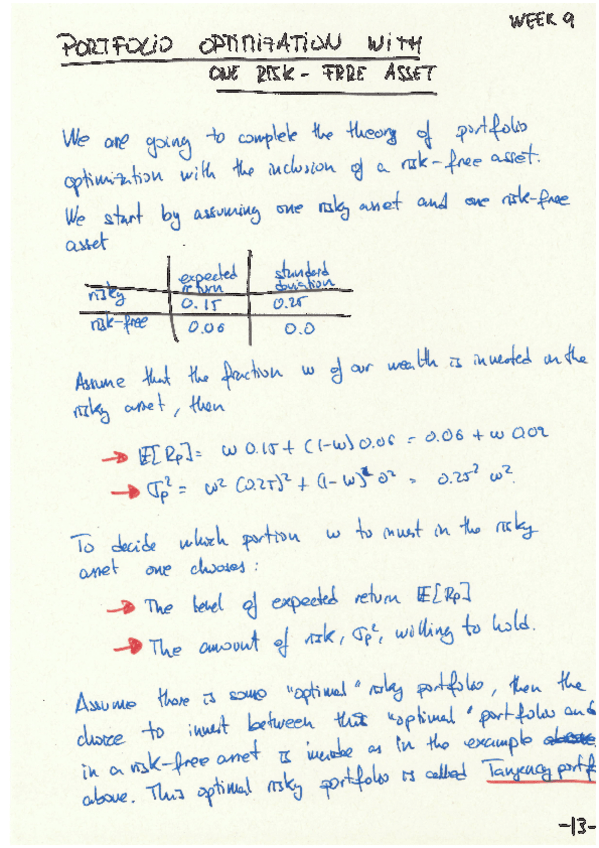 WEEK 9
PORTFOLIO OPTIMIZATION WITH
ONE RISK-FREE ASSET
We are going to complete the theory of portfolio
optimization with the inclusion of a risk-free asset.
We start by assuming one risky asset and one risk-free
asset
expected return standard deviation
risky 0.15 0.25
risk-free 0.06 0.0
Assume that the fraction w of our wealth is invested in the
risky asset, then
→ E[Rp] = w 0.15 + (1-w) 0.06 = 0.06 + w 0.09
→ σp² = w² (0.25)² + (1-w)² 0² = 0.25² w².
To decide which portion w to invest in the risky
asset one chooses:
→ The level of expected return E[Rp]
→ The amount of risk, σp², willing to hold.
Assume there is some "optimal" risky portfolio, then the
choice to invest between this "optimal" portfolio and
in a risk-free asset is as in the example
above. This optimal risky portfolio is called Tangency portf
-13-